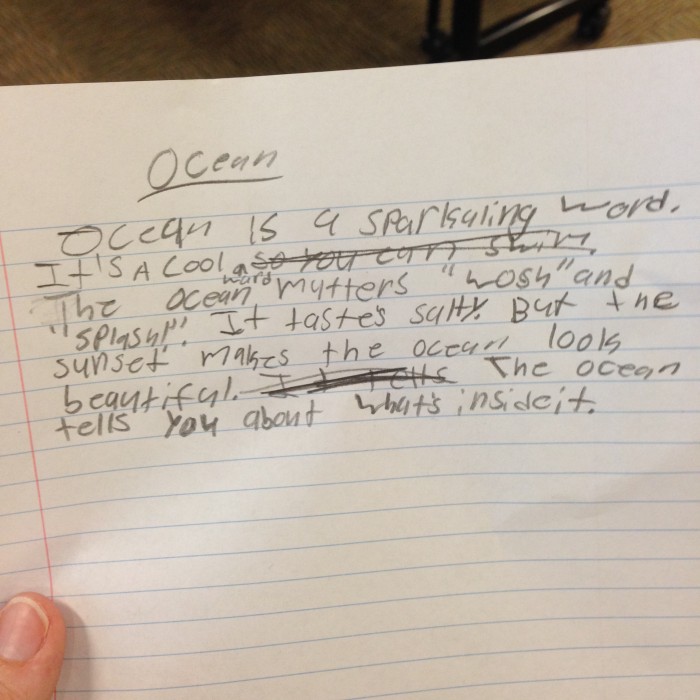 Ocean
Ocean is a sparkuling word.
It's A cool a so you can swim.
The ocean word mutters "wosh" and
"splash!". It tastes salty. But the
sunset makes the ocean look
beautiful. I I tells The ocean
tells you about what's inside it.